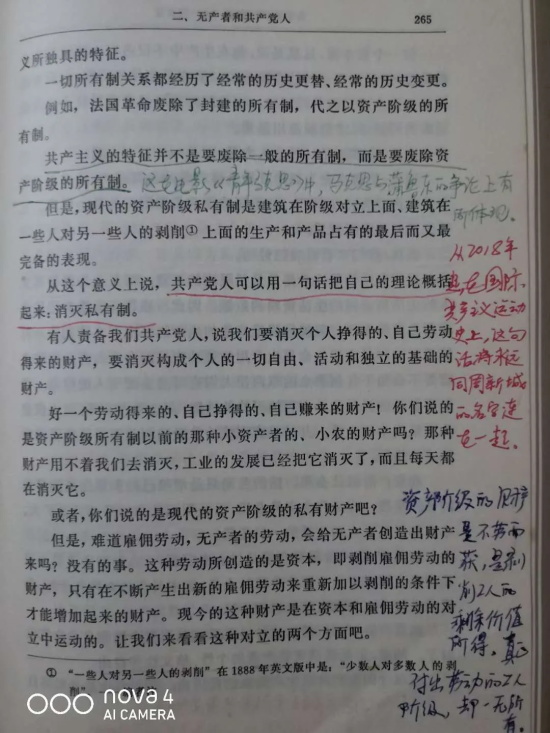 二、无产者和共产党人 265
义所独具的特征。
一切所有制关系都经历了经常的历史更替、经常的历史变更。
例如，法国革命废除了封建的所有制，代之以资产阶级的所
有制。
共产主义的特征并不是要废除一般的所有制，而是要废除资
产阶级的所有制。
这在电影《青年马克思》中，马克思与蒲鲁东的争论上有
所体现。
但是，现代的资产阶级私有制是建筑在阶级对立上面、建筑在
一些人对另一些人的剥削①上面的生产和产品占有的最后而又最
完备的表现。
从这个意义上说，共产党人可以用一句话把自己的理论概括
起来：消灭私有制。
从2018年
起在国际
共产主义运动
史上，这句
话将永远
同周新城
的名字连
在一起。
有人责备我们共产党人，说我们要消灭个人挣得的、自己劳动
得来的财产，要消灭构成个人的一切自由、活动和独立的基础的
财产。
好一个劳动得来的、自己挣得的、自己赚来的财产！你们说的
是资产阶级所有制以前的那种小资产者的、小农的财产吗？那种
财产用不着我们去消灭，工业的发展已经把它消灭了，而且每天都
在消灭它。
或者，你们说的是现代的资产阶级的私有财产吧？
但是，难道雇佣劳动，无产者的劳动，会给无产者创造出财产
来吗？没有的事。这种劳动所创造的是资本，即剥削雇佣劳动的
财产，只有在不断产生出新的雇佣劳动来重新加以剥削的条件下
才能增加起来的财产。现今的这种财产是在资本和雇佣劳动的对
立中运动的。让我们来看看这种对立的两个方面吧。
资产阶级的财产
是不劳而
获，是剥
削工人的
剩余价值
所得。真正
付出劳动的工人
阶级，却一无所
有。
① “一些人对另一些人的剥削”在1888年英文版中是：“少数人对多数人的剥
削”
nova 4
AI CAMERA